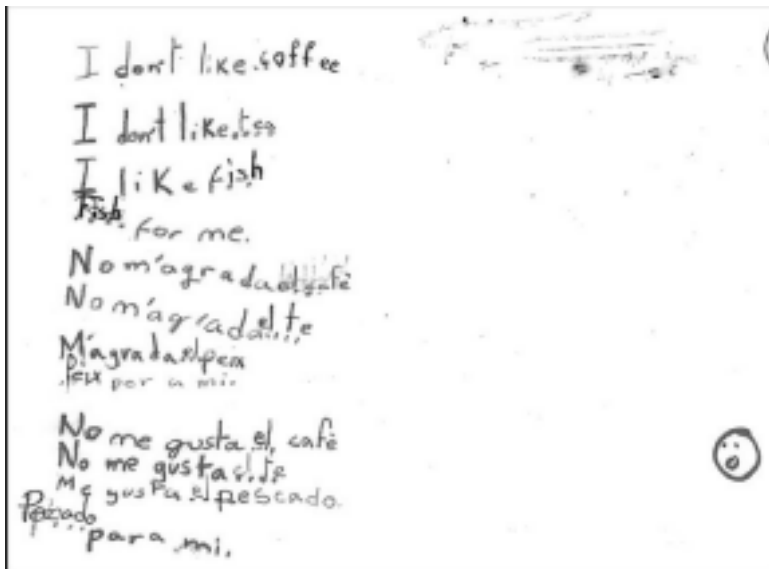 I don't like coffee
I don't like tea
I like fish
Fish
for me.
No m'agrada el cafè
No m'agrada el te
M'agrada el peix
Peix per a mi.
No me gusta el cafè
No me gusta el te
Me gusta el pescado.
Pescado
para mi.